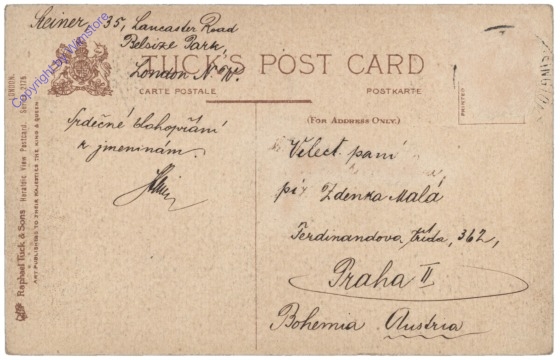 Steiner, 35, Lancaster Road
Belsize Park,
London N.W.
TUCK'S POST CARD
CARTE POSTALE
POSTKARTE
(FOR ADDRESS ONLY.)
Srdečné blahopřání
k jmeninám.
Velect. paní
pí Zdenka Malá
Ferdinandova třída, 362,
Praha II
Bohemia Austria
Raphael Tuck & Sons Heraldic View Postcard Series 2178. LONDON.
ART PUBLISHERS TO THEIR MAJESTIES THE KING & QUEEN
PRINTED
Copyright by Wienstore